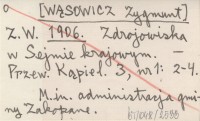 [WĄSOWICZ Zygmunt]
Z.W. 1906. Zdrojowiska
w Sejmie krajowym –
Przew. Kąpiel. 3, nr 1: 2-4.
M.in. administracja gmi-
ny Zakopane.